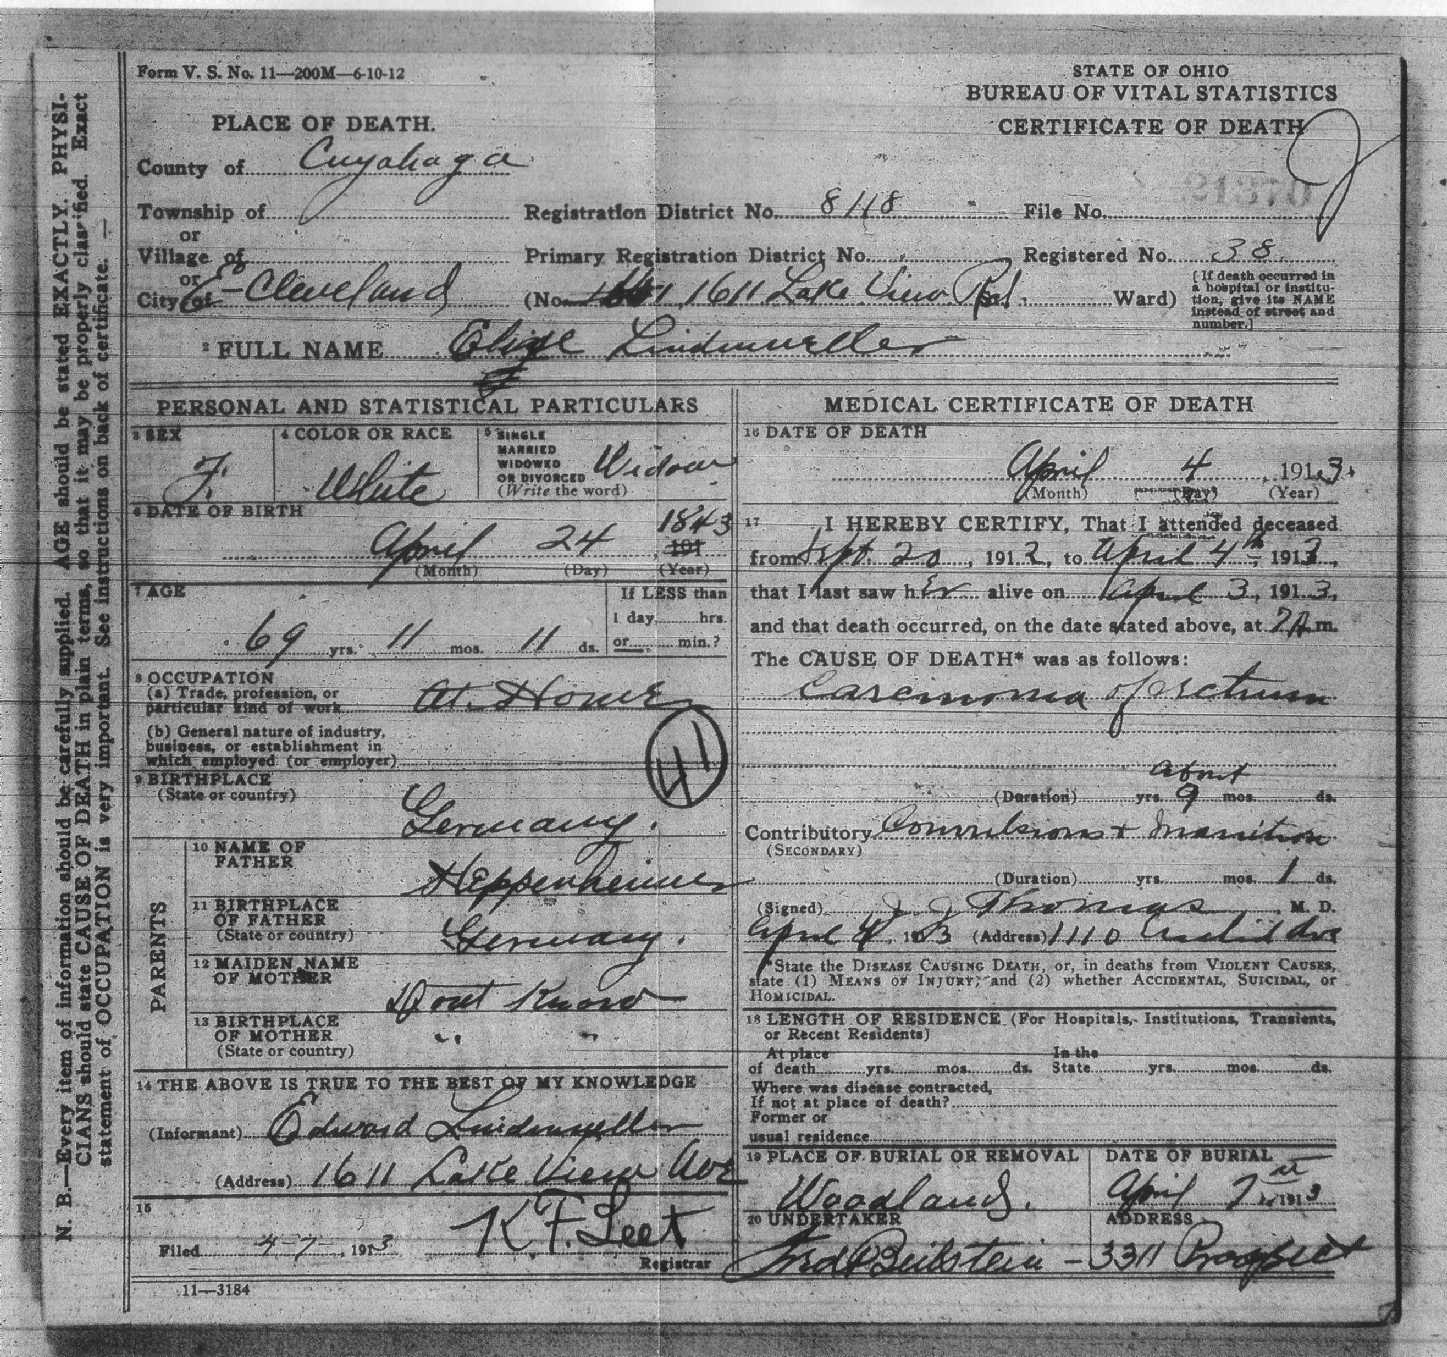 Form V. S. No. 11—200M—6-10-12
STATE OF OHIO
BUREAU OF VITAL STATISTICS
CERTIFICATE OF DEATH
PLACE OF DEATH.
County of Cuyahoga
21370
Township of
Registration District No. 8118
File No.
or
Village of
Primary Registration District No.
Registered No. 38
or
City of E Cleveland
(No. 1611 Lake View Rd. Ward)
(If death occurred in
a hospital or institu-
tion, give its NAME
instead of street and
number.)
2 FULL NAME Elise Lindenmeller
PERSONAL AND STATISTICAL PARTICULARS
3 SEX
F.
4 COLOR OR RACE
White
5 SINGLE
MARRIED
WIDOWED
OR DIVORCED
(Write the word)
Widow
6 DATE OF BIRTH
April 24 1843
191
(Month) (Day) (Year)
7 AGE
69 yrs. 11 mos. 11 ds.
If LESS than
1 day, hrs.
or min.?
8 OCCUPATION
(a) Trade, profession, or
particular kind of work At Home
(b) General nature of industry,
business, or establishment in
which employed (or employer)
41
9 BIRTHPLACE
(State or country)
Germany.
PARENTS
10 NAME OF
FATHER
Heppenheimer
11 BIRTHPLACE
OF FATHER
(State or country)
Germany.
12 MAIDEN NAME
OF MOTHER
Dont Know
13 BIRTHPLACE
OF MOTHER
(State or country)
" "
14 THE ABOVE IS TRUE TO THE BEST OF MY KNOWLEDGE
(Informant) Edward Lindenmeller
(Address) 1611 Lake View Ave
15
Filed 4-7-, 1913 K F. Leet
Registrar
11—3184
MEDICAL CERTIFICATE OF DEATH
16 DATE OF DEATH
April 4, 1913.
(Month) (Day) (Year)
17 I HEREBY CERTIFY, That I attended deceased
from Sept. 20, 1912, to April 4th, 1913,
that I last saw her alive on April 3, 1913,
and that death occurred, on the date stated above, at 7 A. m.
The CAUSE OF DEATH* was as follows:
Carcinoma of rectum
about
(Duration) yrs. 9 mos. ds.
Contributory Convulsions + Inanition
(SECONDARY)
(Duration) yrs. mos. 1 ds.
(Signed) J J Thomas, M. D.
April 4, 1913 (Address) 1110 Euclid Ave
*State the DISEASE CAUSING DEATH, or, in deaths from VIOLENT CAUSES,
state (1) MEANS OF INJURY; and (2) whether ACCIDENTAL, SUICIDAL, or
HOMICIDAL.
18 LENGTH OF RESIDENCE (For Hospitals, Institutions, Transients,
or Recent Residents)
At place In the
of death yrs. mos. ds. State yrs. mos. ds.
Where was disease contracted,
If not at place of death?
Former or
usual residence
19 PLACE OF BURIAL OR REMOVAL
Woodland.
DATE OF BURIAL
April 7, 1913
20 UNDERTAKER
Beilstein
ADDRESS
3311 Prospect
N. B.—Every item of information should be carefully supplied. AGE should be stated EXACTLY. PHYSI-
CIANS should state CAUSE OF DEATH in plain terms, so that it may be properly classified. Exact
statement of OCCUPATION is very important. See instructions on back of certificate.